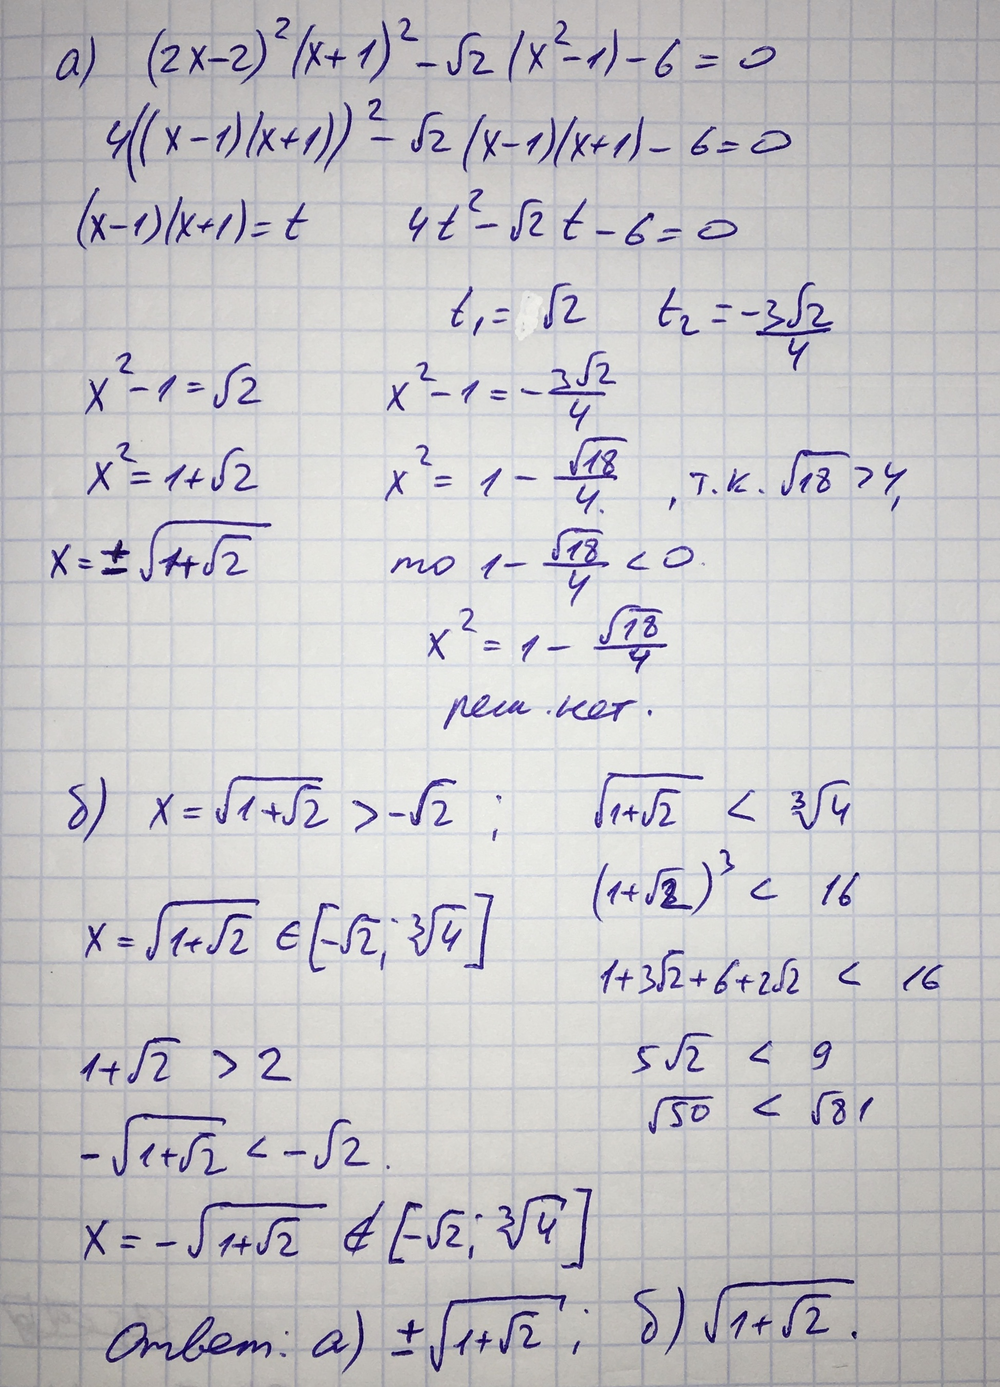 а) (2x-2)²(x+1)² - √2 (x²-1) - 6 = 0
4((x-1)(x+1))² - √2 (x-1)(x+1) - 6 = 0
(x-1)(x+1) = t 4t² - √2 t - 6 = 0
t₁ = √2 t₂ = -3√2/4
x² - 1 = √2 x² - 1 = -3√2/4
x² = 1+√2 x² = 1 - √18/4. , т.к. √18 > 4,
x = ±√(1+√2) то 1 - √18/4 < 0.
x² = 1 - √18/4
реш. нет.
б) x = √(1+√2) > -√2 ; √(1+√2) < ∛4
(1+√2)³ < 16
x = √(1+√2) ∈ [-√2; ∛4]
1+3√2+6+2√2 < 16
1+√2 > 2 5√2 < 9
√50 < √81
-√(1+√2) < -√2.
x = -√(1+√2) ∉ [-√2; ∛4]
Ответ: а) ±√(1+√2); б) √(1+√2).